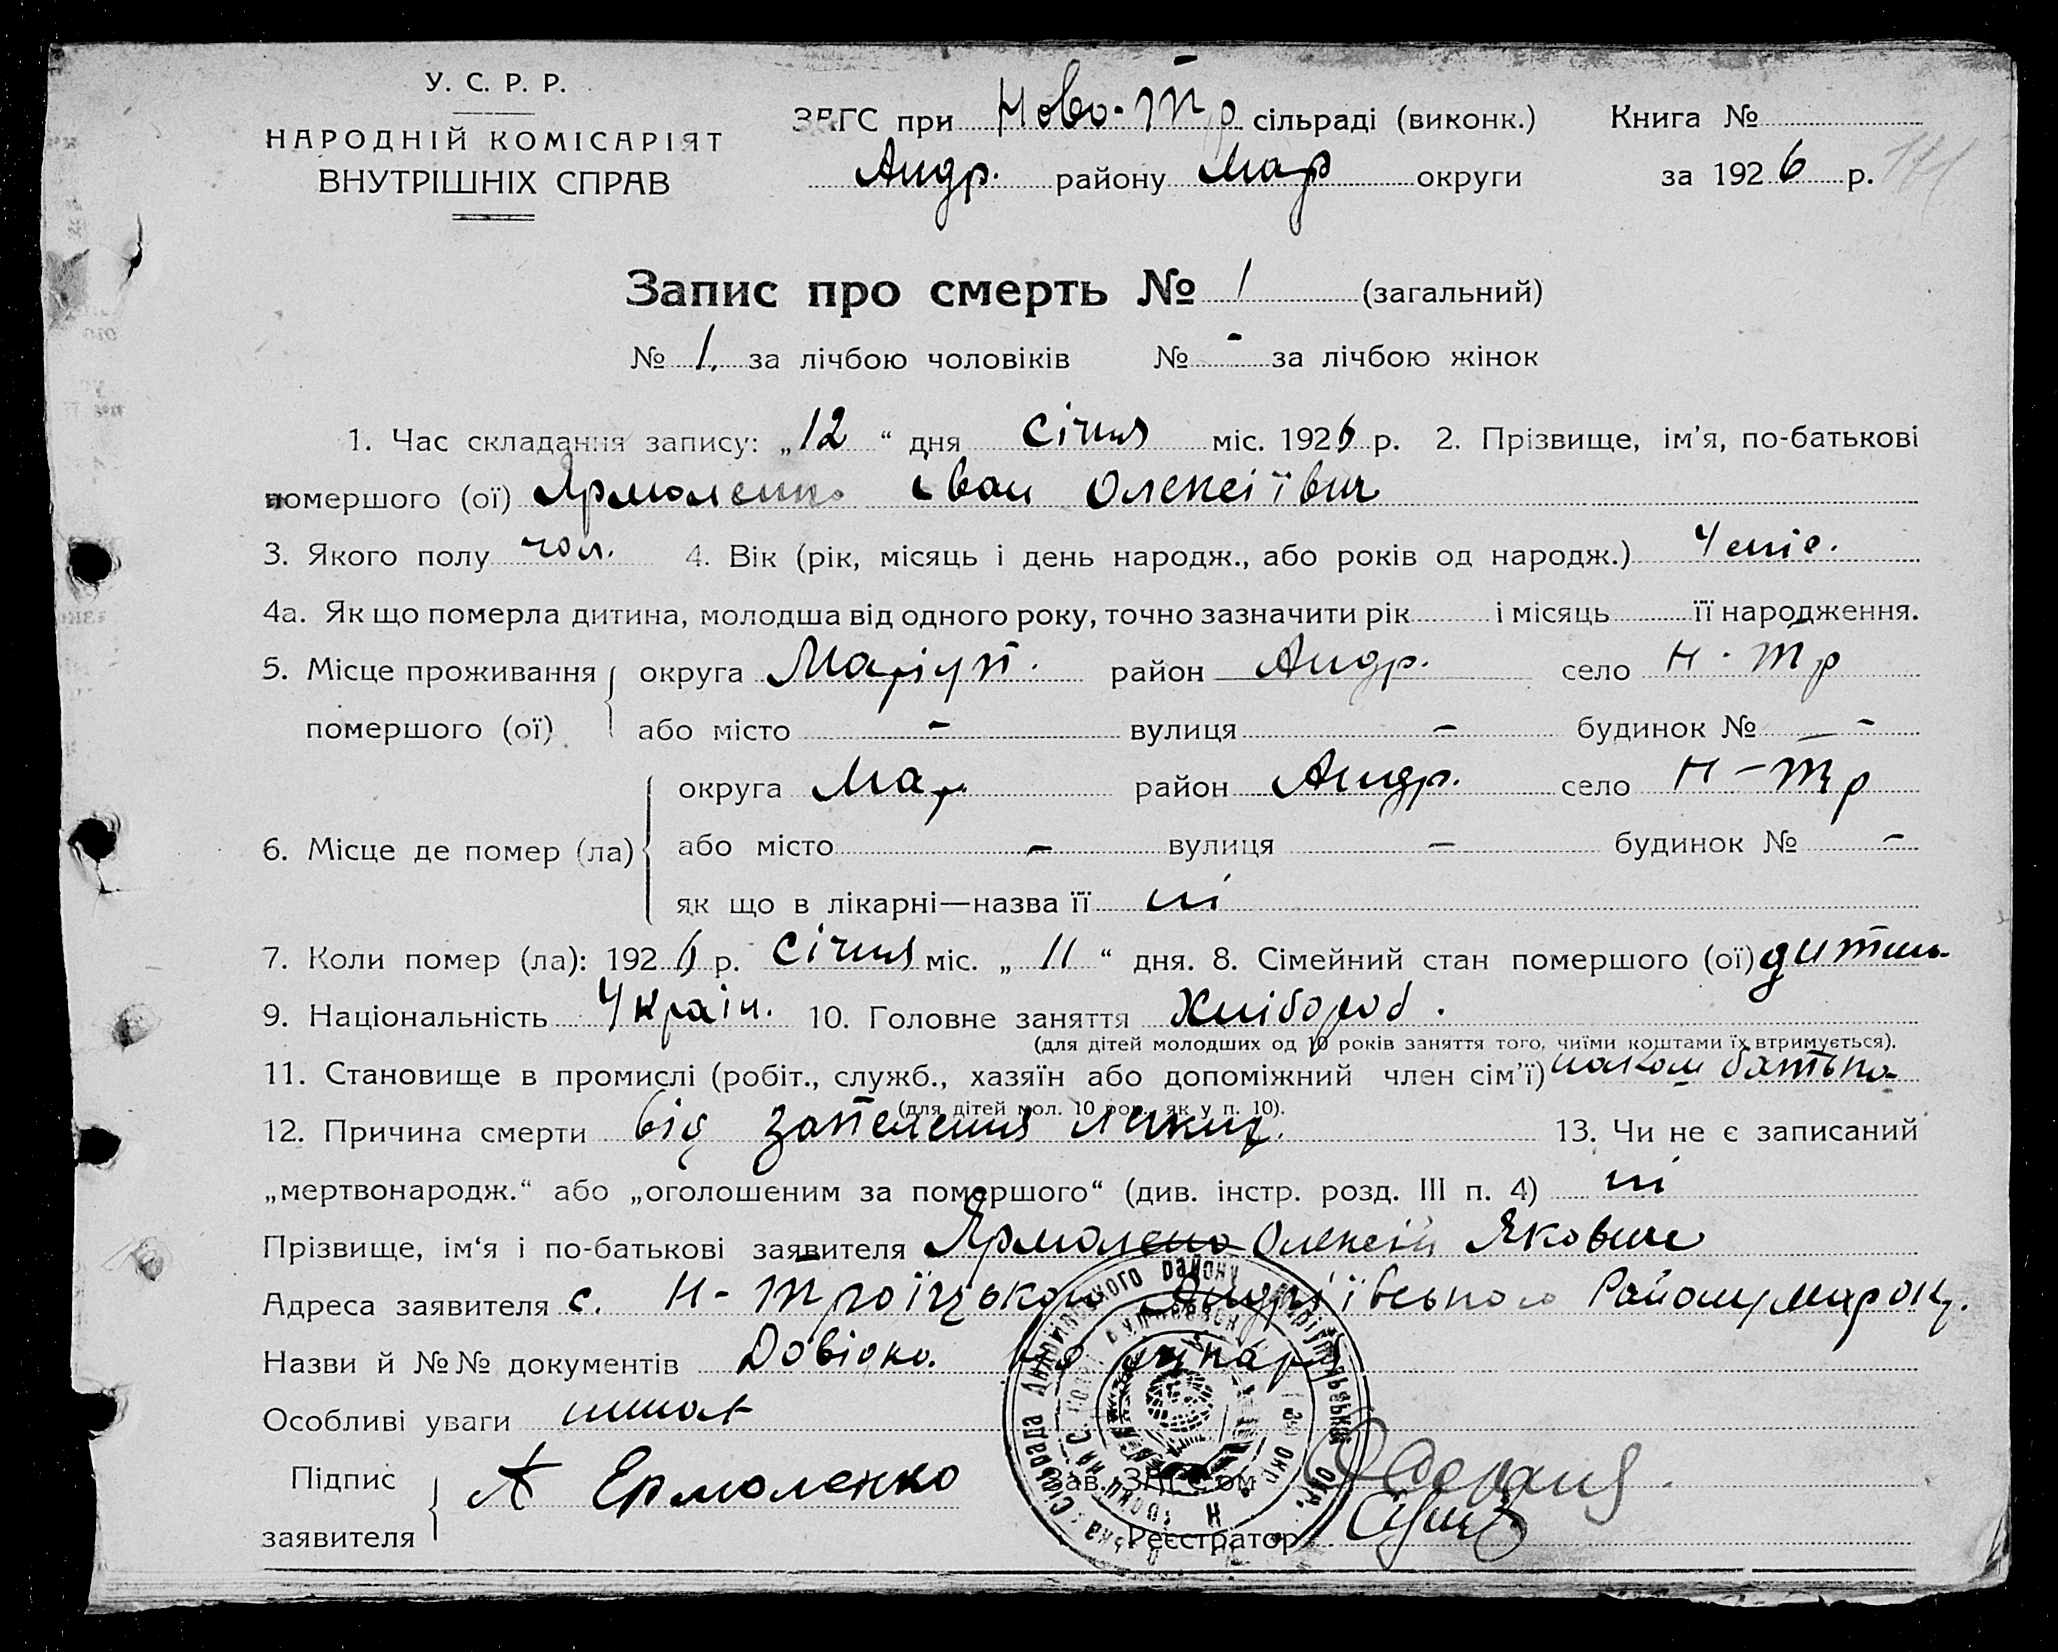 У. С. Р. Р.
НАРОДНІЙ КОМІСАРІЯТ
ВНУТРІШНІХ СПРАВ
ЗАГС при Ново-Тр сільраді (виконк.) Книга №
Андр. району Мар округи за 1926 р.
Запис про смерть № 1 (загальний)
№ 1. за лічбою чоловіків № - за лічбою жінок
1. Час складання запису: „12“ дня січня міс. 1926 р. 2. Прізвище, ім’я, по-батькові
помершого (ої) Ярмоленко Іван Олексіївич
3. Якого полу чол. 4. Вік (рік, місяць і день народж., або років од народж.)
4а. Як що померла дитина, молодша від одного року, точно зазначити рік і місяць її народження.
5. Місце проживання округа Маріуп. район Андр. село Н-Тр
помершого (ої) або місто - вулиця - будинок № -
округа Мар. район Андр. село Н-Тр
6. Місце де помер (ла) або місто - вулиця - будинок № -
як що в лікарні—назва її ні
7. Коли помер (ла): 1926 р. Січня міс. „11“ дня. 8. Сімейний стан помершого (ої) дитин
9. Національність Україн. 10. Головне заняття Хлібороб.
(для дітей молодших од 10 років заняття того, чиїми коштами їх втримується).
11. Становище в промислі (робіт., служб., хазяїн або допоміжний член сім’ї) батька
(для дітей мол. 10 рок., як у п. 10).
12. Причина смерти від запелення легких. 13. Чи не є записаний
„мертвонародж.“ або „оголошеним за помершого“ (див. інстр. розд. III п. 4) ні
Прізвище, ім‘я і по-батькові заявителя Ярмолено Олексій Якович
Адреса заявителя с. Н-Троїцького Андріївського Району Мар окр.
Назви й №№ документів Довідка лікаря
Особливі уваги немає
Підпис
заявителя А Ермоленко
Зав. ЗАГСом
Реєстратор